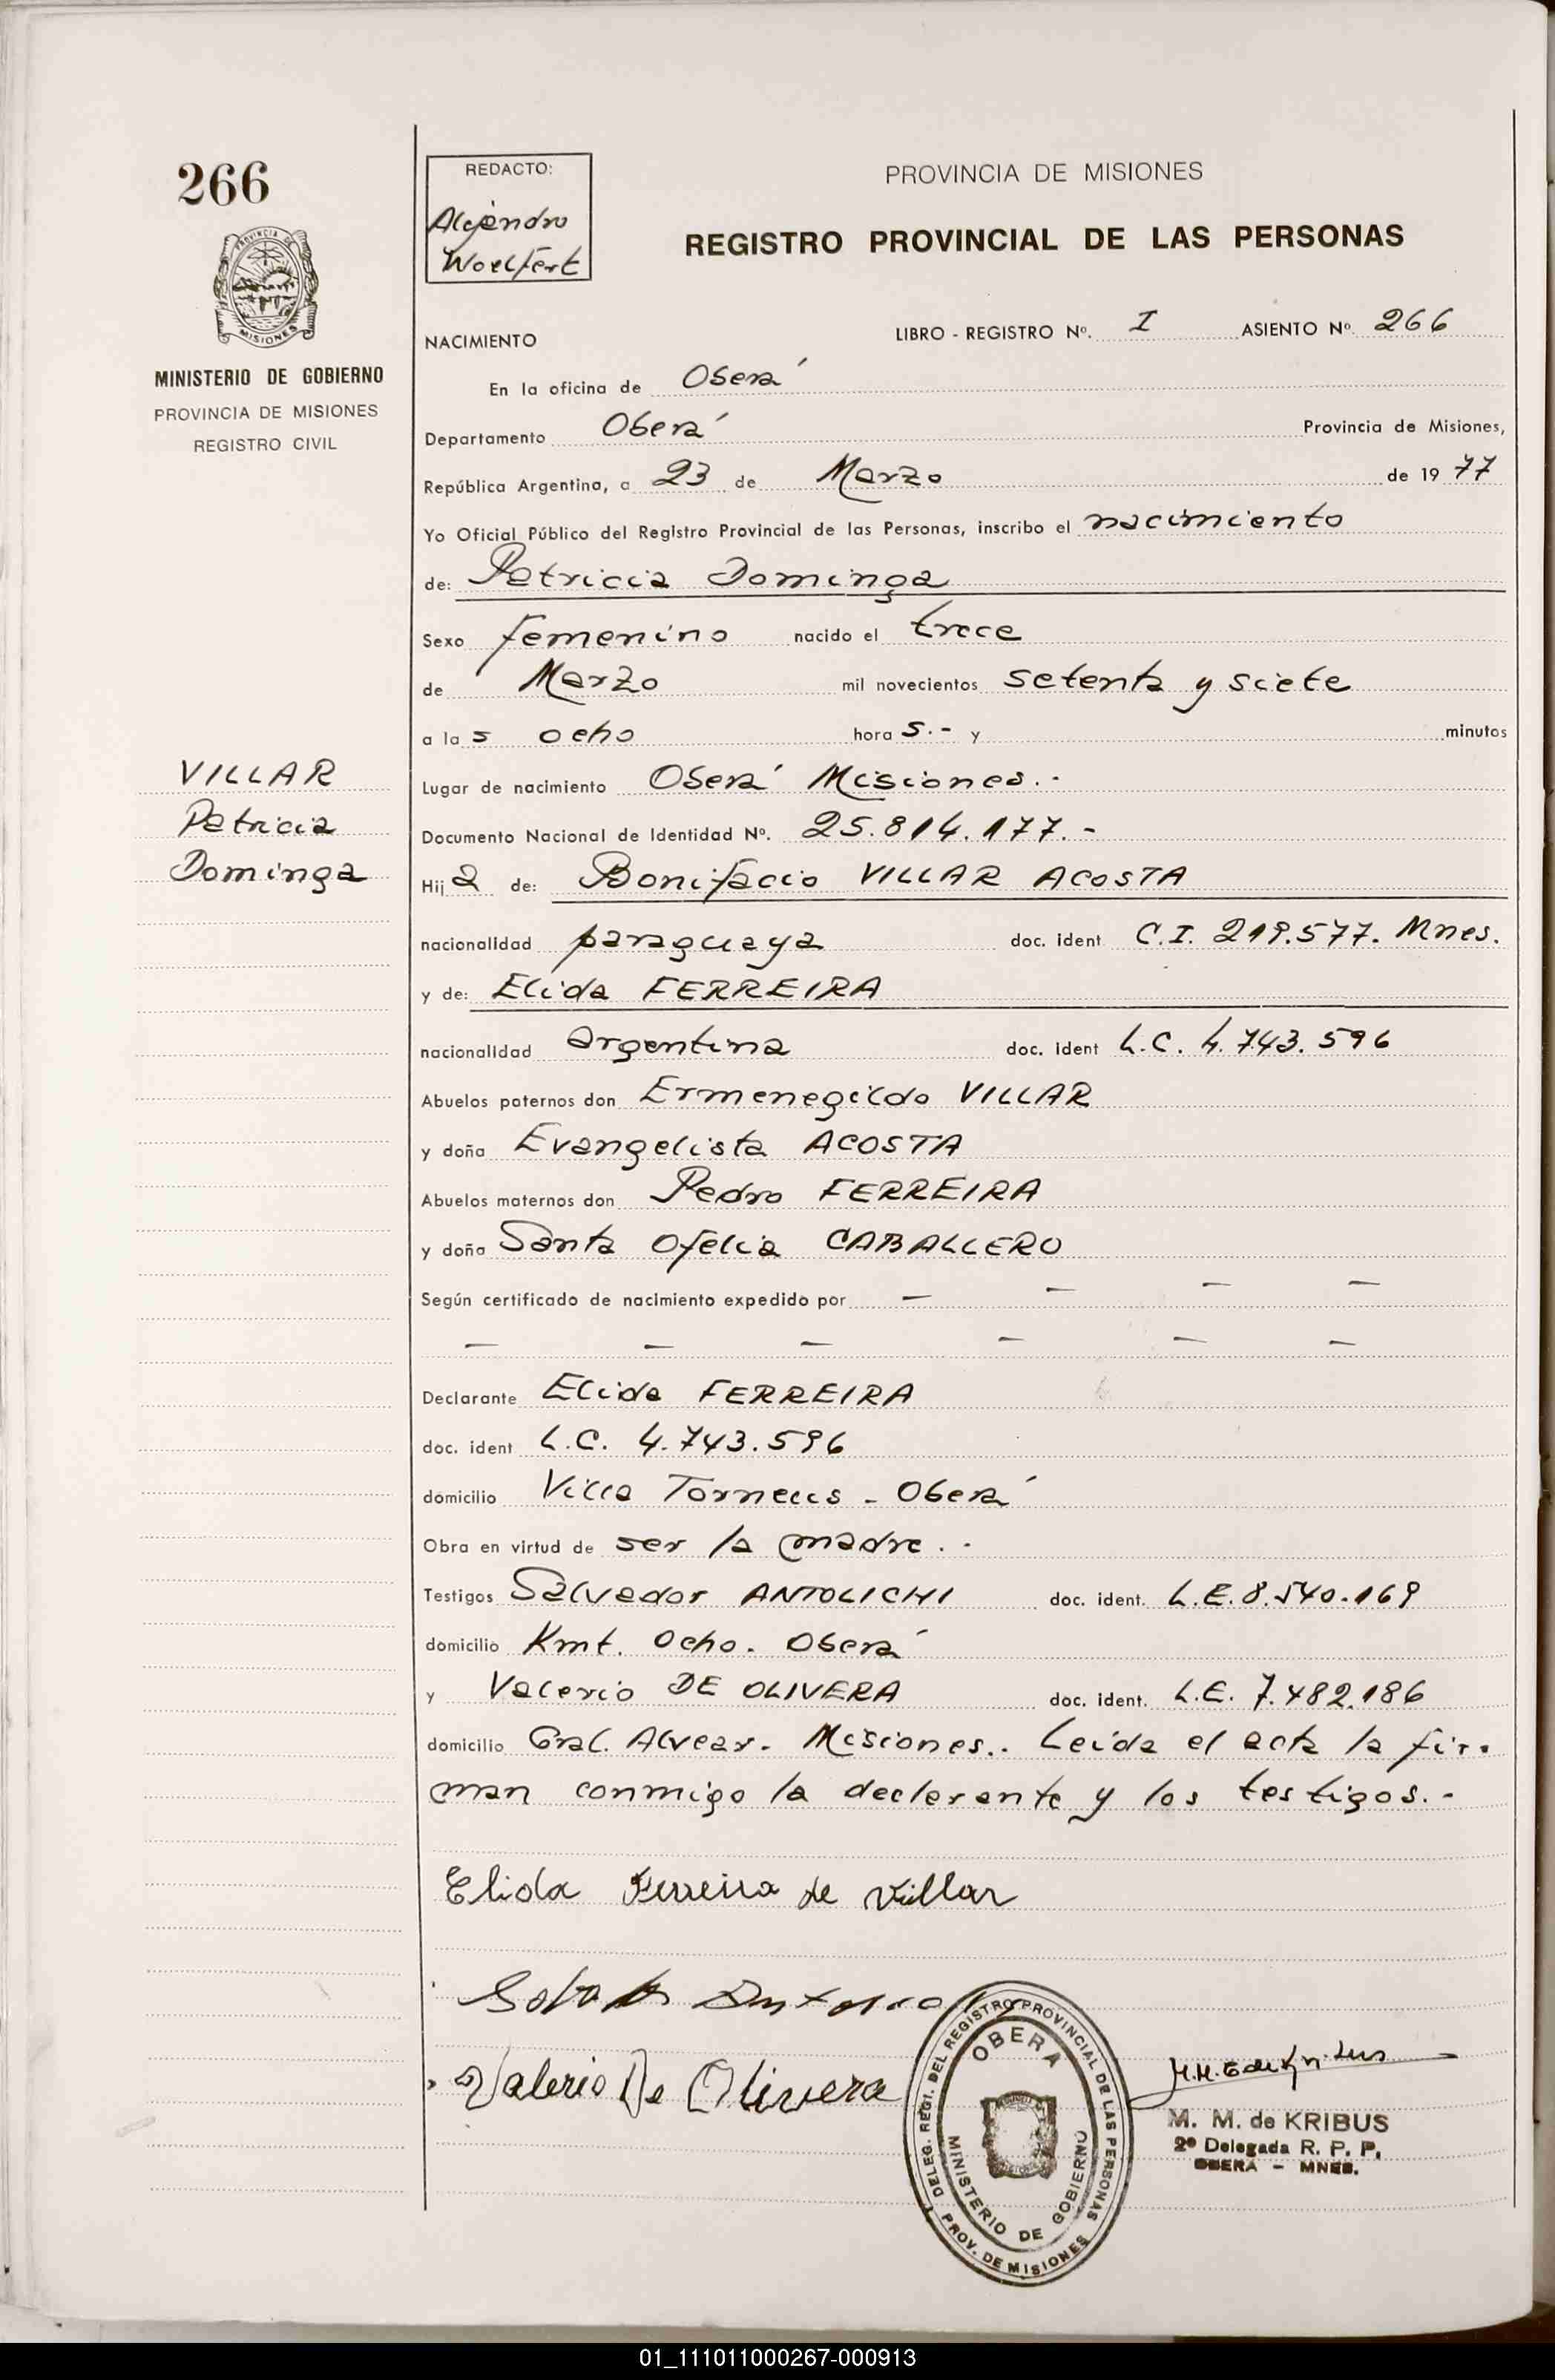 266
PROVINCIA DE
MISIONES
MINISTERIO DE GOBIERNO
PROVINCIA DE MISIONES
REGISTRO CIVIL
VILLAR
Patricia
Dominga
REDACTO:
Alejandro
Woelfert
PROVINCIA DE MISIONES
REGISTRO PROVINCIAL DE LAS PERSONAS
NACIMIENTO LIBRO - REGISTRO Nº. I ASIENTO Nº 266
En la oficina de Oberá
Departamento Oberá Provincia de Misiones,
República Argentina, a 23 de Marzo de 19 77
Yo Oficial Público del Registro Provincial de las Personas, inscribo el nacimiento
de: Patricia Dominga
Sexo femenino nacido el trece
de Marzo mil novecientos setenta y siete
a la s ocho hora s.- y minutos
Lugar de nacimiento Oberá Misiones.-
Documento Nacional de Identidad Nº. 25.814.177.-
Hij a de: Bonifacio VILLAR ACOSTA
nacionalidad paraguaya doc. ident C.I. 219.577. Mnes.
y de: Elida FERREIRA
nacionalidad argentina doc. ident L.C. 4.743.596
Abuelos paternos don Ermenegildo VILLAR
y doña Evangelista ACOSTA
Abuelos maternos don Pedro FERREIRA
y doña Santa Ofelia CABALLERO
Según certificado de nacimiento expedido por — — — —
— — — — — —
Declarante Elida FERREIRA
doc. ident L.C. 4.743.596
domicilio Villa Torneus - Oberá
Obra en virtud de ser la madre.-
Testigos Salvador ANTOLICHI doc. ident. L.E. 8.540.169
domicilio Kmt. Ocho. Oberá
y Valerio DE OLIVERA doc. ident. L.E. 7.482.186
domicilio Gral. Alvear. Misiones.. Leída el acta la fir-
man conmigo la declarante y los testigos.-
Elida Ferreira de Villar
Valerio De Olivera
DELEG. REGI. DEL REGISTRO PROVINCIAL DE LAS PERSONAS
PROV. DE MISIONES
OBERA
MINISTERIO DE GOBIERNO
M. M. de KRIBUS
2º Delegada R. P. P.
OBERA - MNES.
01_111011000267-000913